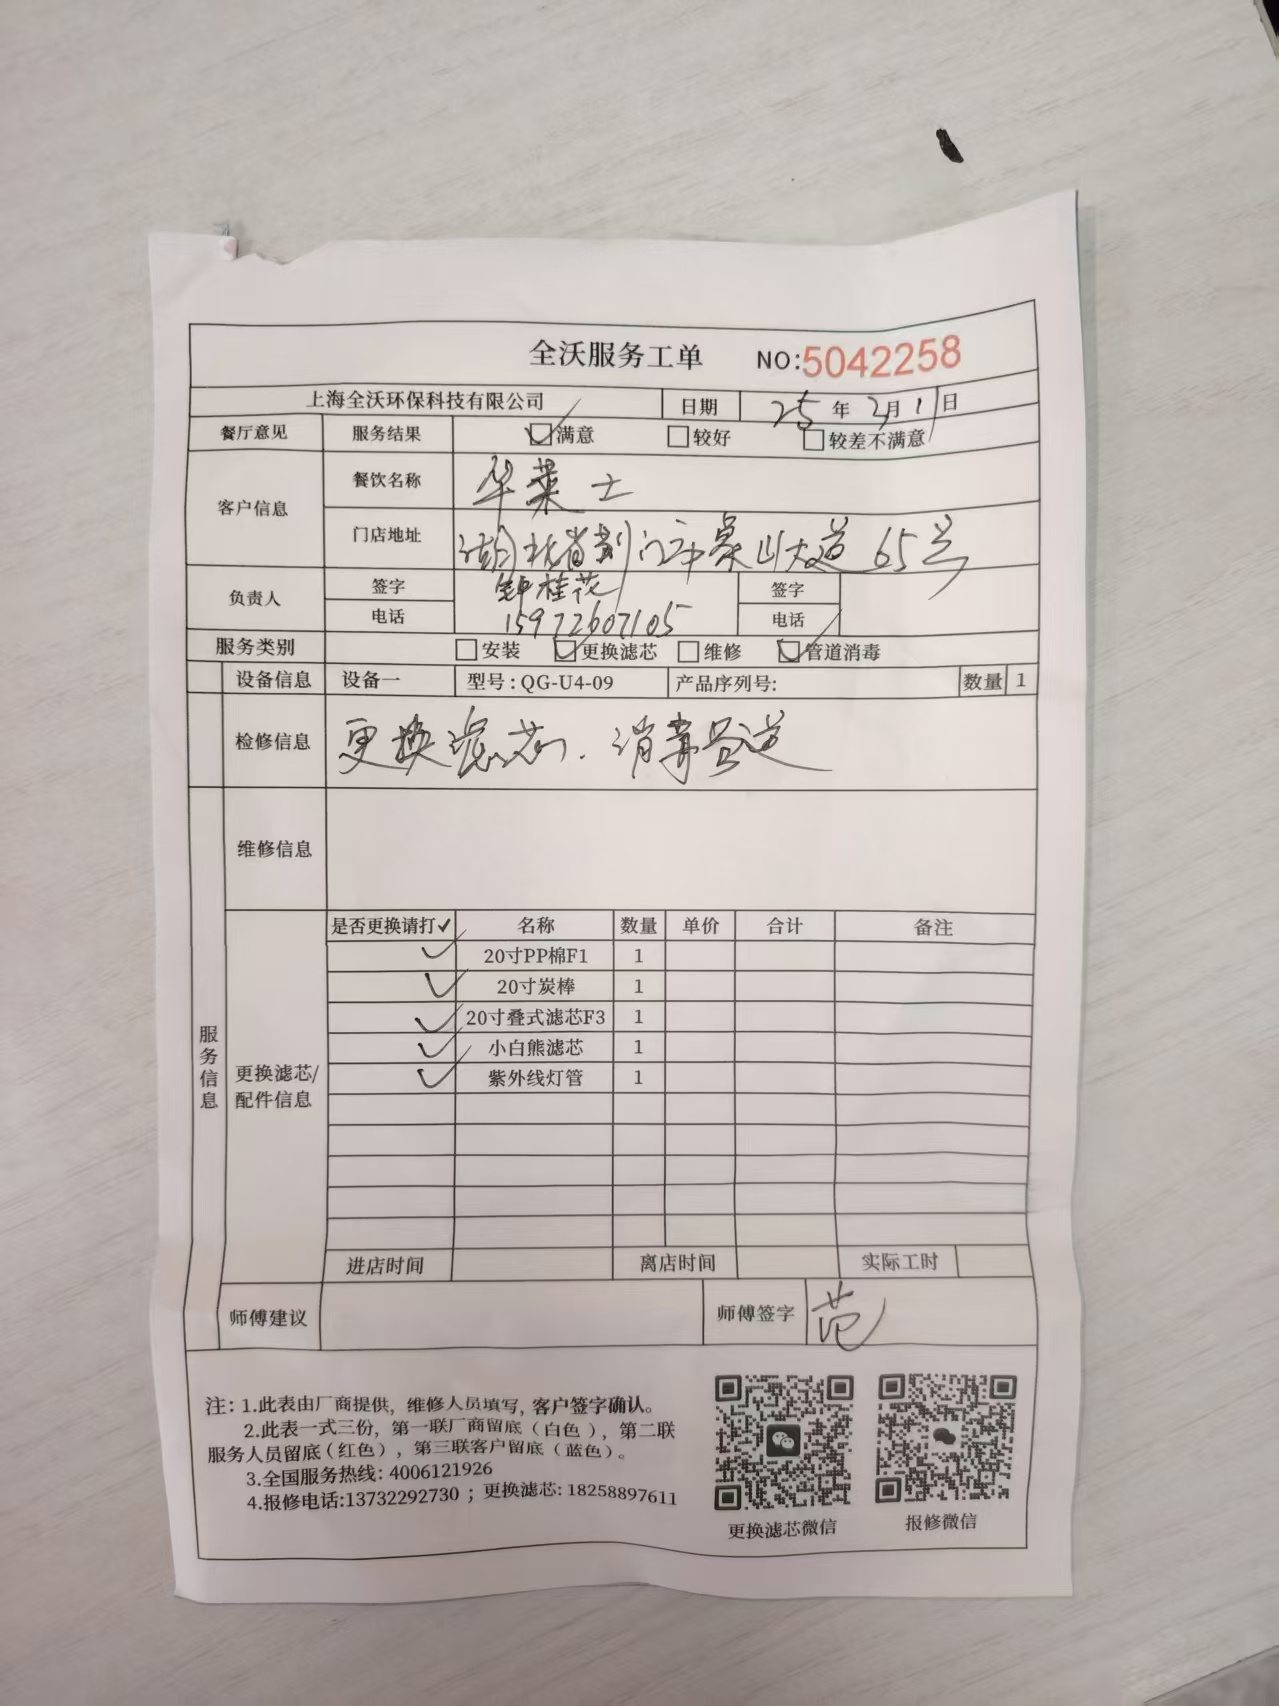 全沃服务工单 NO:5042258
上海全沃环保科技有限公司 日期 25年2月1日
餐厅意见 服务结果 满意 较好 较差不满意
客户信息 餐饮名称 华莱士
门店地址 湖北省荆门市象山大道65号
负责人 签字 钟桂花 签字
电话 15972607105 电话
服务类别 安装 更换滤芯 维修 管道消毒
设备信息 设备一 型号:QG-U4-09 产品序列号: 数量 1
检修信息 更换滤芯、消毒管道
维修信息
服务信息
更换滤芯/
配件信息
是否更换请打✓ 名称 数量 单价 合计 备注
✓ 20寸PP棉F1 1
✓ 20寸炭棒 1
✓ 20寸叠式滤芯F3 1
✓ 小白熊滤芯 1
✓ 紫外线灯管 1
进店时间 离店时间 实际工时
师傅建议 师傅签字 范
注:1.此表由厂商提供，维修人员填写,客户签字确认。
2.此表一式三份，第一联厂商留底（白色），第二联
服务人员留底(红色)，第三联客户留底（蓝色)。
3.全国服务热线:4006121926
4.报修电话:13732292730；更换滤芯:18258897611
更换滤芯微信 报修微信